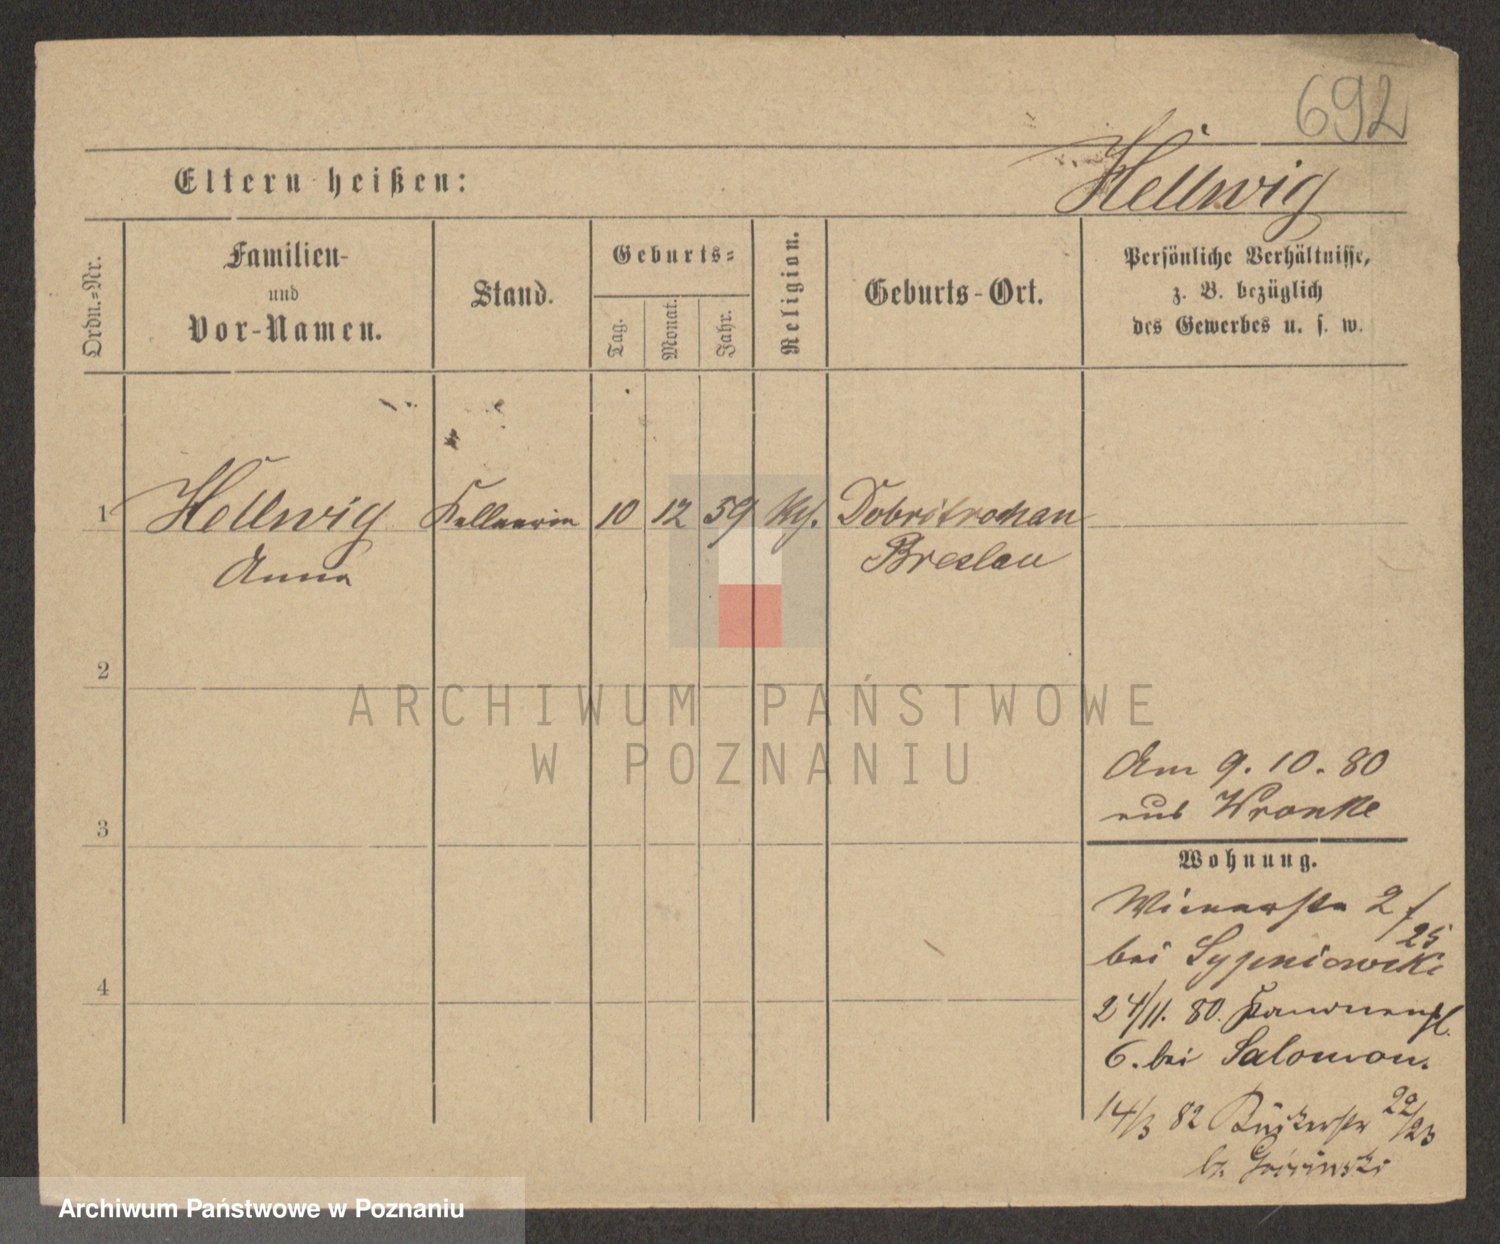 692
Eltern heißen:
Hellwig
Ordn.=Nr.
Familien-
und
Vor-Namen.
Stand.
Geburts=
Tag.
Monat.
Jahr.
Religion.
Geburts-Ort.
Persönliche Verhältnisse,
z. B. bezüglich
des Gewerbes u. s. w.
1 Hellwig Kellnerin 10 12 59 Dobritrochan
Anna Breslau
2
ARCHIWUM PAŃSTWOWE
W POZNANIU
Am 9. 10. 80
aus Wronke
3
Wohnung.
Wienerstr 2
25
bei Sypniewski
4
24/11. 80.
6. bei Salomon.
14/3 82 22/23
Archiwum Państwowe w Poznaniu